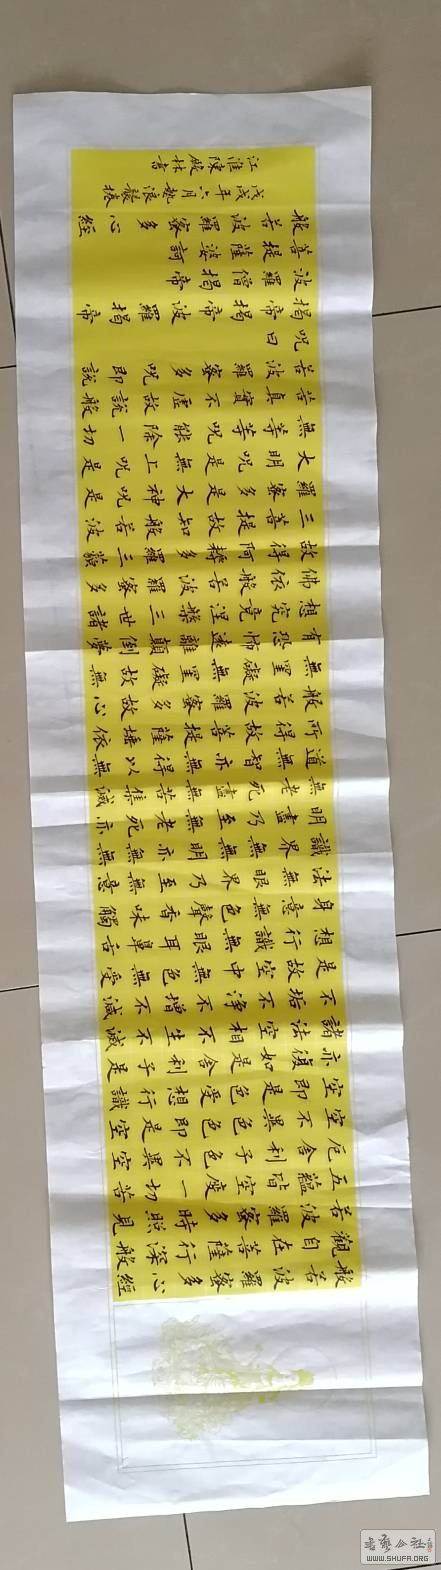 般若波羅蜜多心經
觀自在菩薩行深般
若波羅蜜多時照見
五蘊皆空度一切苦
厄舍利子色不異空
空不異色色即是空
空即是色受想行識
亦復如是舍利子是
諸法空相不生不滅
不垢不淨不增不減
是故空中無色無受
想行識無眼耳鼻舌
身意無色聲香味觸
法無眼界乃至無意
識界無無明亦無無
明盡乃至無老死亦
無老死盡無苦集滅
道無智亦無得以無
所得故菩提薩埵依
般若波羅蜜多故心
無罣礙無罣礙故無
有恐怖遠離顛倒夢
想究竟涅槃三世諸
佛依般若波羅蜜多
故得阿耨多羅三藐
三菩提故知般若波
羅蜜多是大神呪是
大明呪是無上呪是
無等等呪能除一切
苦真實不虛故說般
若波羅蜜多呪即說
呪曰
揭帝揭帝波羅揭帝
波羅僧揭帝
菩提薩婆訶
般若波羅蜜多心經
戊戌年六月
江淮陳殿林書
WWW.SHUFA.ORG